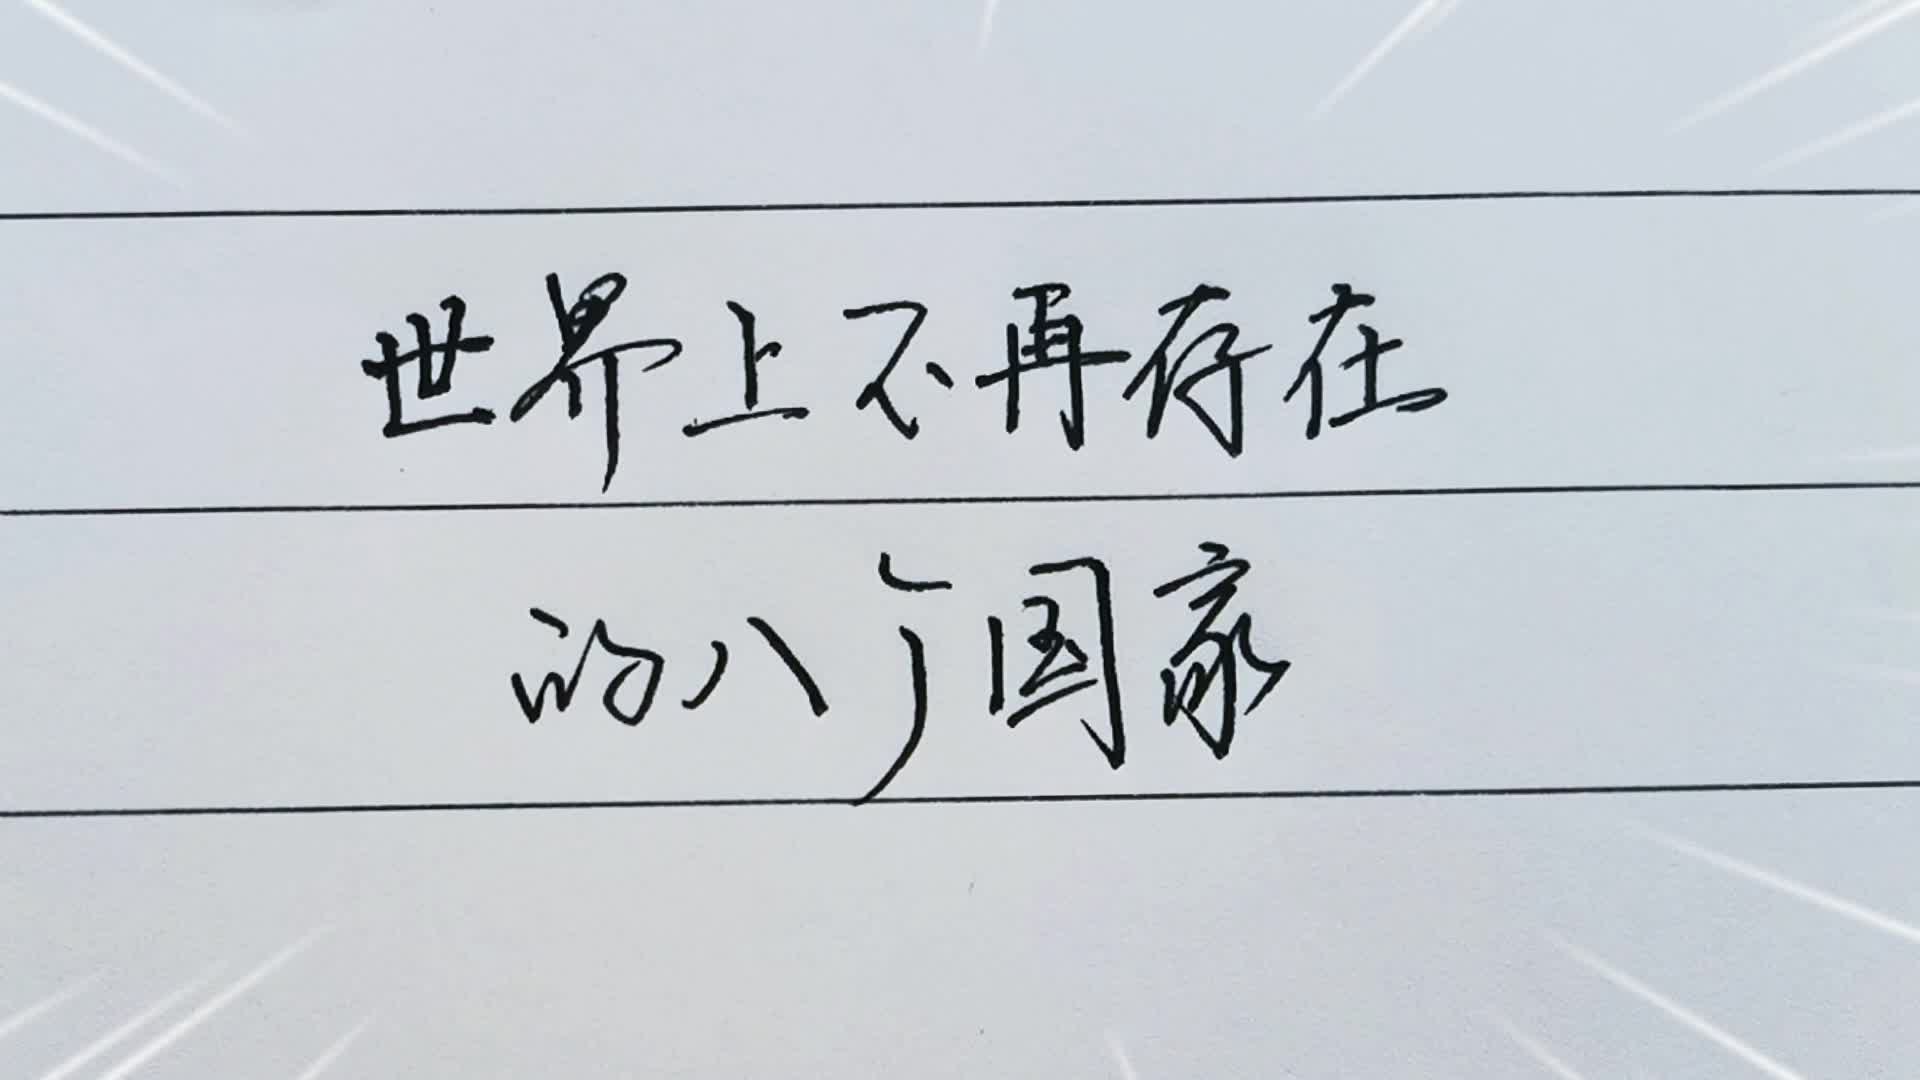 世界上不再存在
的八个国家